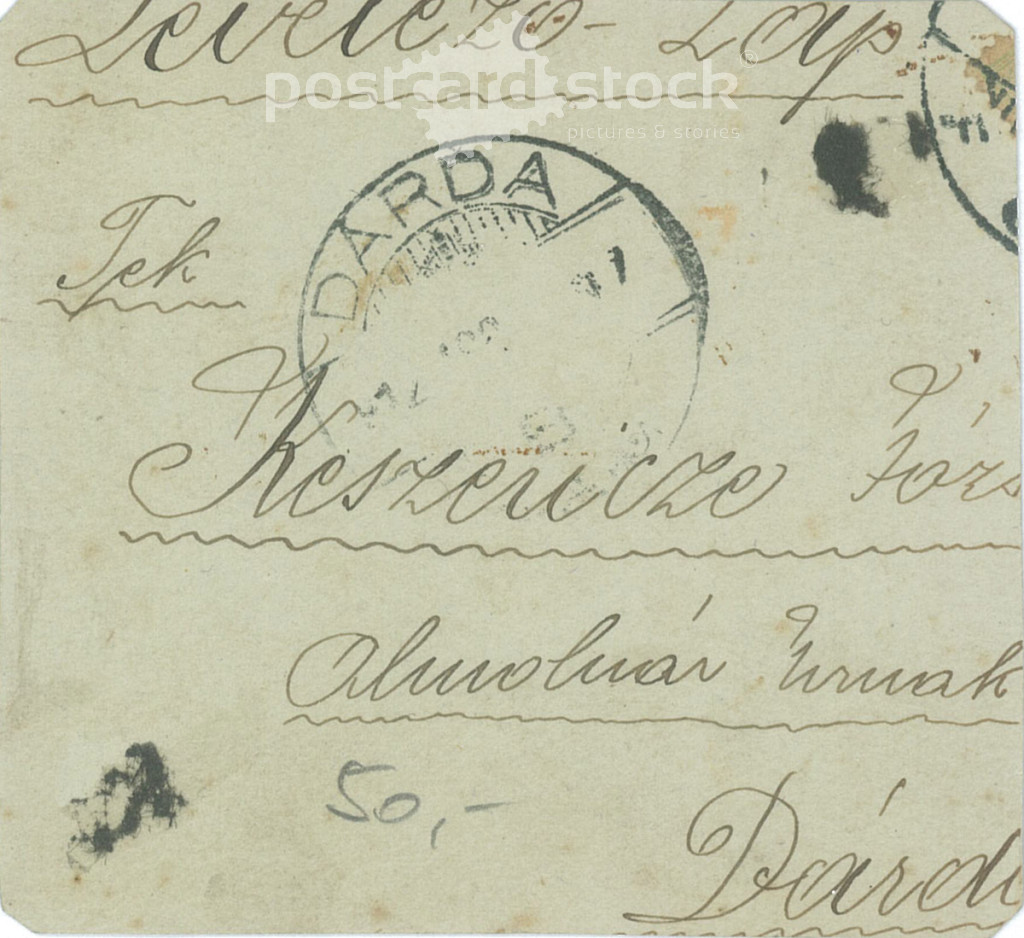 Levelező-Lap
postcard stock
pictures & stories
DARDA
Tek
Keszericze
Urnak
50,-
Dárd